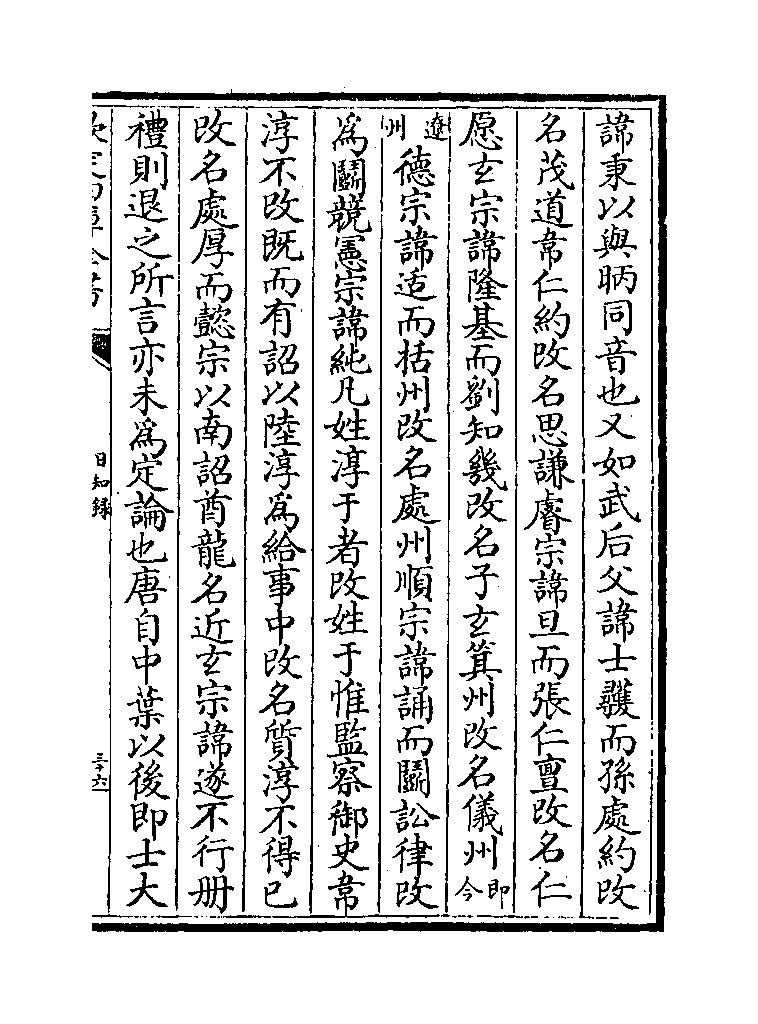 諱秉以與昞同音也又如武后父諱士彠而孫處約改
名茂道韋仁約改名思謙睿宗諱旦而張仁亶改名仁
愿玄宗諱隆基而劉知幾改名子玄箕州改名儀州即今
遼州德宗諱适而括州改名處州順宗諱誦而鬭訟律改
為鬭競憲宗諱純凡姓淳于者改姓于惟監察御史韋
淳不改既而有詔以陸淳為給事中改名質淳不得已
改名處厚而懿宗以南詔酋龍名近玄宗諱遂不行册
禮則退之所言亦未為定論也唐自中葉以後即士大
欽定四庫全書
日知録
三十六